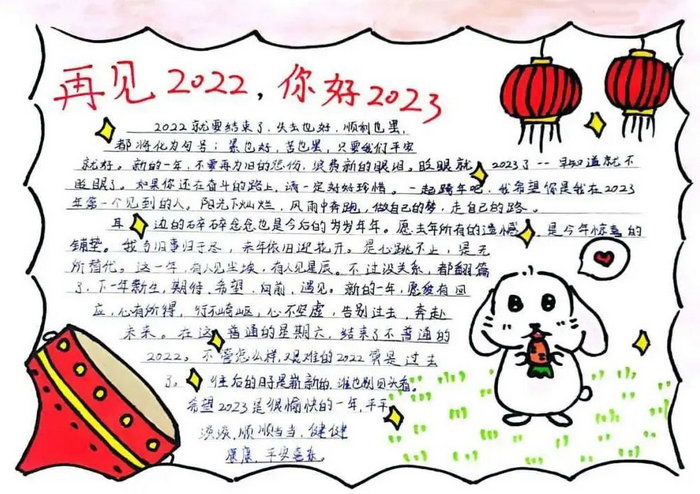 再见2022，你好2023
2022就要结束了，失去也好，顺利也罢，
都将化为句号；累也好，苦也罢，只要我们平安
就好。新的一年，不要再为旧的悲伤，浪费新的眼泪。眨眼就2023了--早知道就不
眨眼了。如果你还在奋斗的路上，请一定好好珍惜。一起跨年吧，我希望你是我在2023
年第一个见到的人。阳光下灿烂，风雨中奔跑，做自己的梦，走自己的路。
耳边的碎碎念念也是今后的岁岁年年。愿去年所有的遗憾，是今年惊喜的
铺垫。我与旧事归于尽，来年依旧迎花开。是心跳不止，是无
所替代。这一年，有人见尘埃，有人见星辰。不过没关系，都翻篇
了，下一年新生，期待，希望，向前，遇见。新的一年，愿爱有回
应，心有所得，行不崎岖，心不空虚，告别过去，奔赴
未来。在这普通的星期六，结束了不普通的
2022。不管怎么样，艰难的2022算是过去
了，往后的时是崭新的，谁也别回头看。
希望2023是很愉快的一年，平平
淡淡，顺顺当当，健健
康康，平安喜乐。